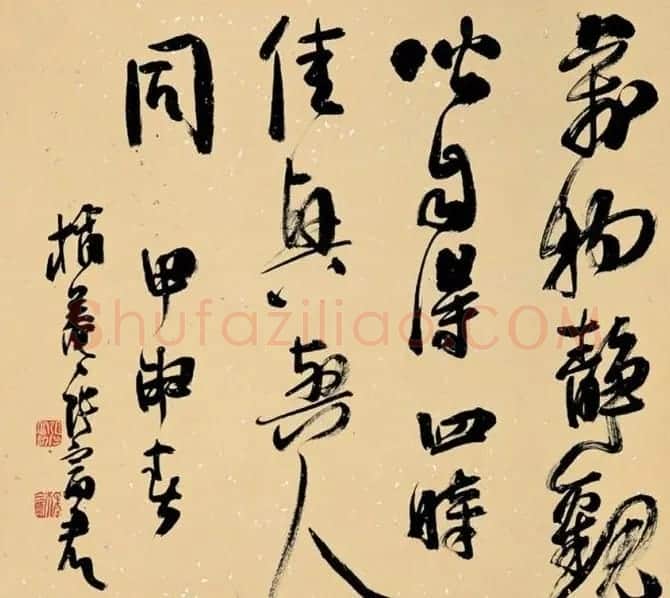 萬物靜觀
皆自得四時
佳興與人
同
甲申春
張富君
Shufaziliao.COM